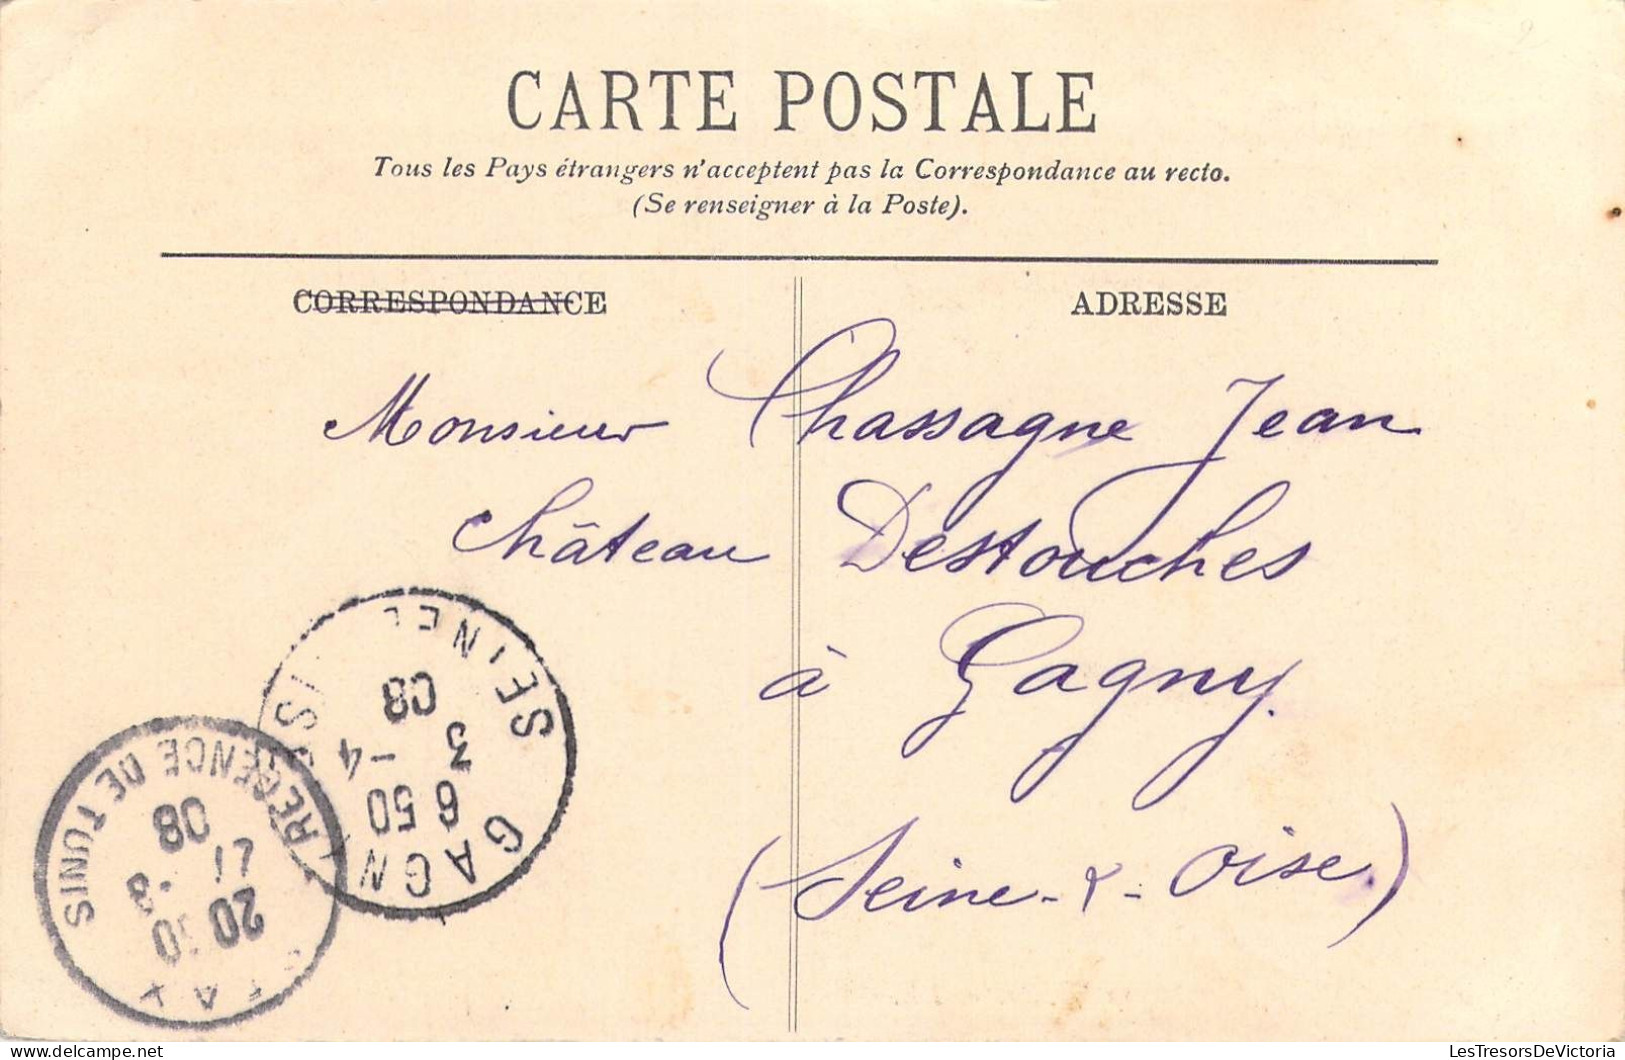 CARTE POSTALE
Tous les Pays étrangers n'acceptent pas la Correspondance au recto.
(Se renseigner à la Poste).
CORRESPONDANCE
ADRESSE
Monsieur Chassagne Jean
Château Destouches
à Gagny.
(Seine-&-Oise.)
GAGN
SEINE
6 50
3 -4
08
REGENCE DE TUNIS
20 30
08
LesTresorsDeVictoria